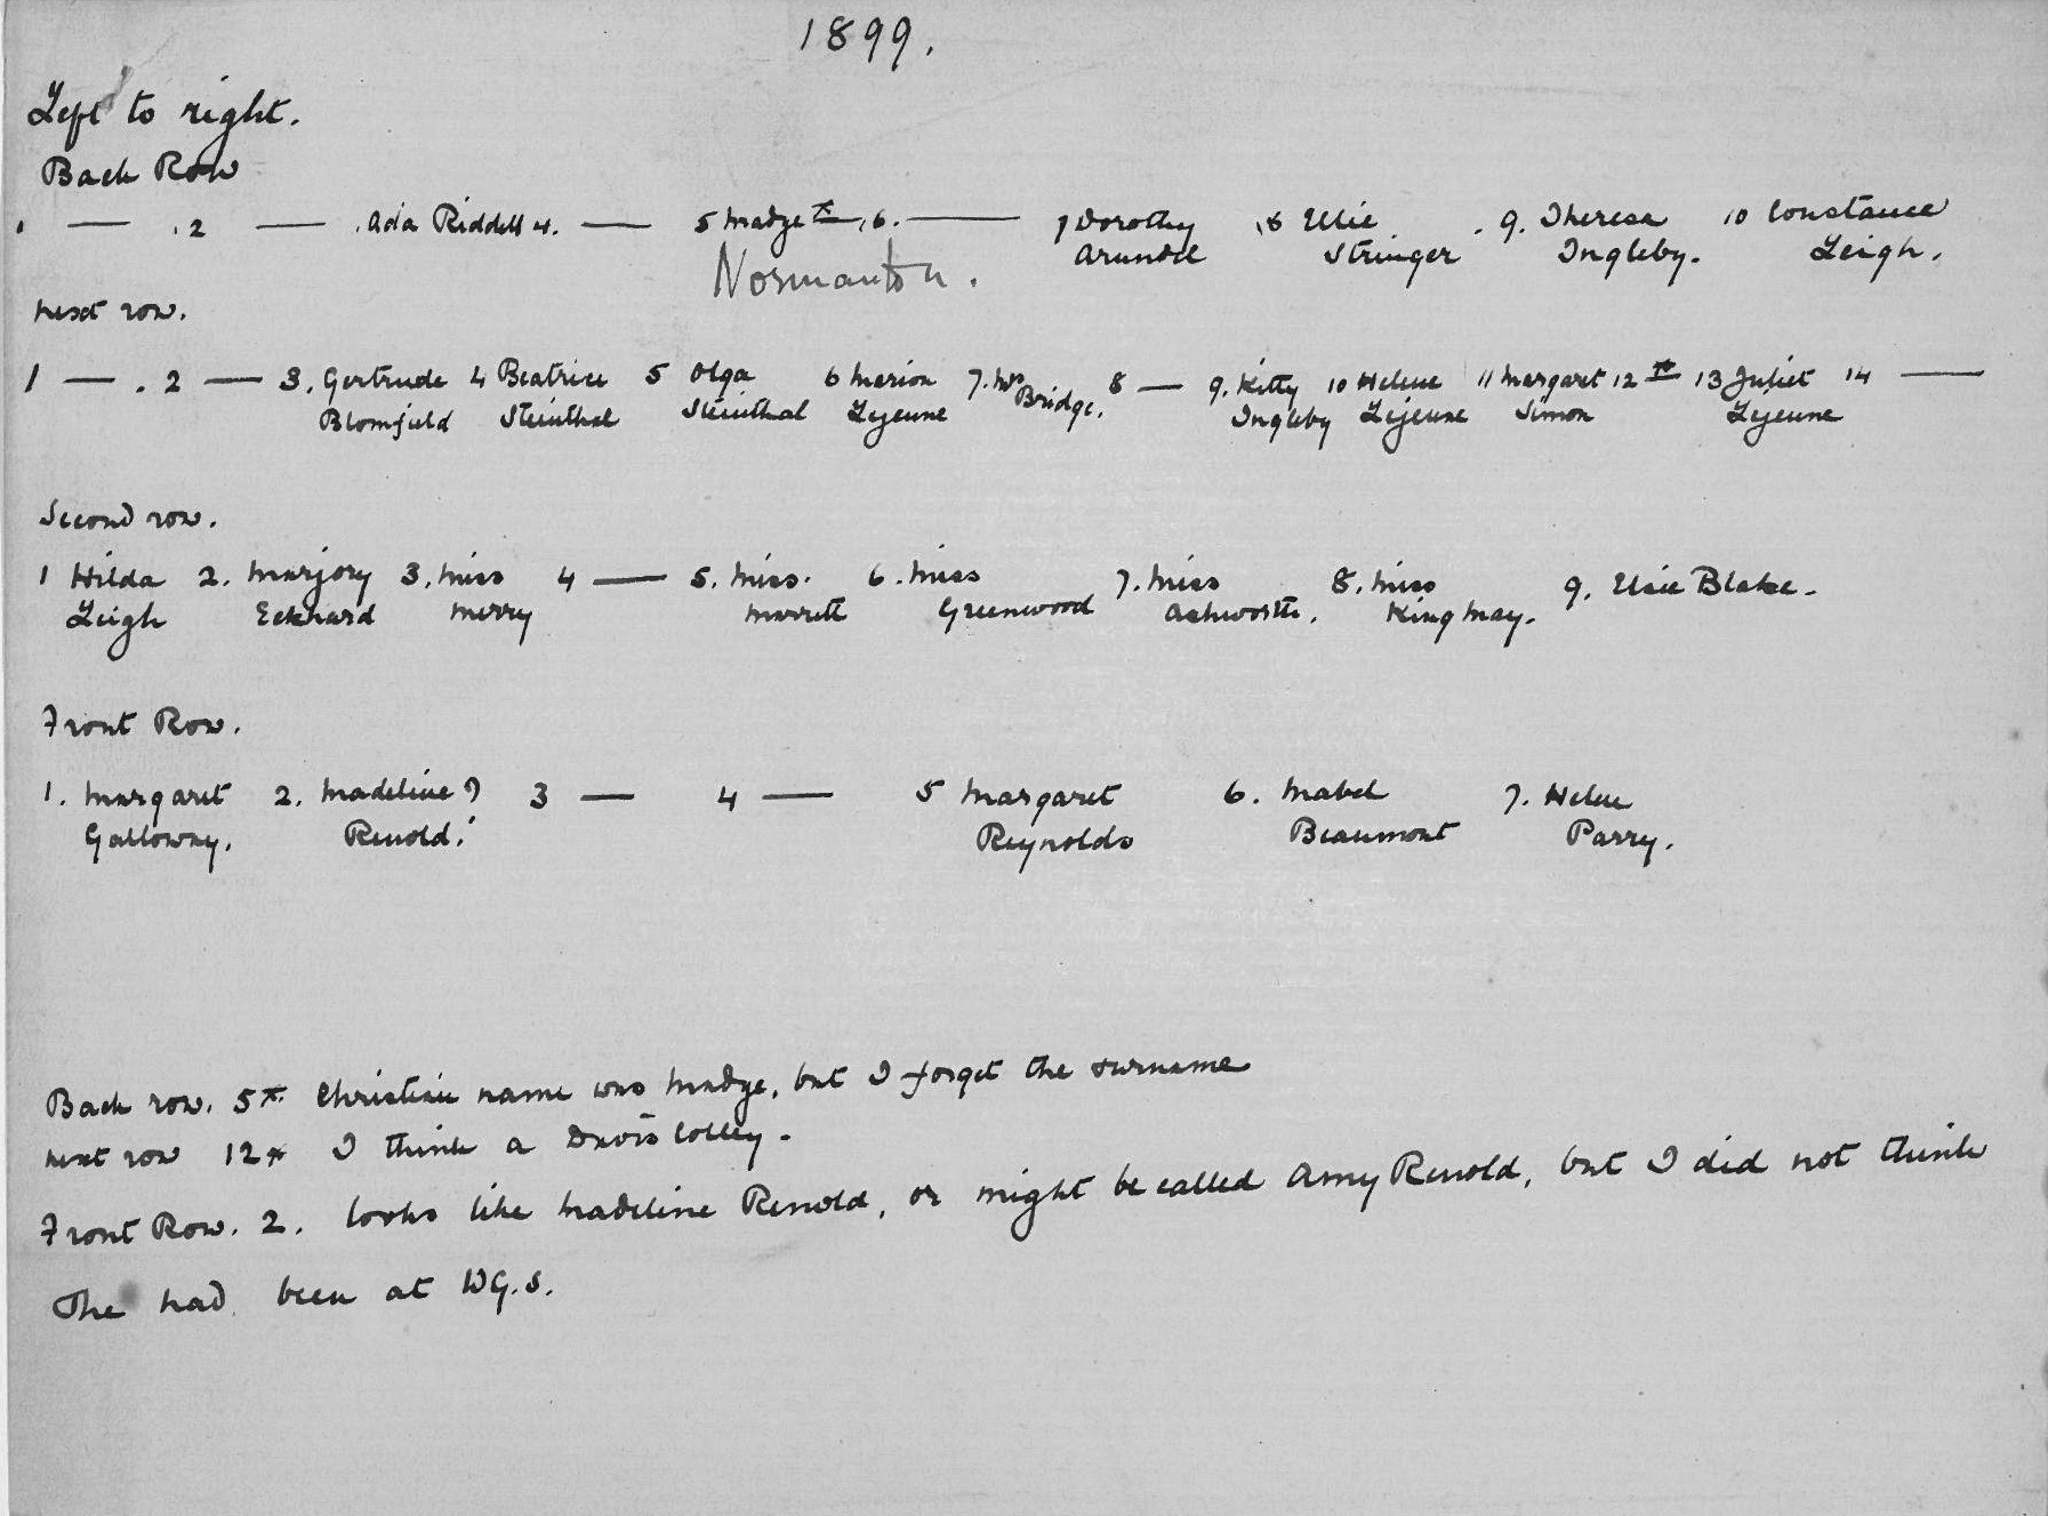 1899.
Left to right.
Back Row
1 — . 2 — . Ada Riddell 4. — 5 Madge x — , 6. — 7 Dorothy 8 Elsie . 9. Theresa 10 Constance
Arundel Stringer Ingleby. Leigh.
Normanton.
next row.
1 — . 2 — 3. Gertrude 4 Beatrice 5 Olga 6 Marion 7. Mrs 8 — 9. Kitty 10 Helene 11 Margaret 12 x — 13 Juliet 14 —
Blomfield Steinthal Steinthal Lejeune Bridge. Ingleby Lejeune Simon Lejeune
Second row.
1 Hilda 2. Marjory 3. Miss 4 — 5. Miss. 6. Miss 7. Miss 8. Miss 9. Elsie Blake.
Leigh Eckhard Merry Merrett Greenwood Ashworth. King May.
Front Row.
1. Margaret 2. Madeline ? 3 — 4 — 5 Margaret 6. Mabel 7. Helen
Galloway. Renold. Reynolds Beaumont Parry.
Back row. 5 x. Christian name was Madge, but I forget the surname
next row 12 x I think a Davis Colley.
Front Row. 2. looks like Madeline Renold, or might be called Amy Renold, but I did not think
She had been at W.G.S.